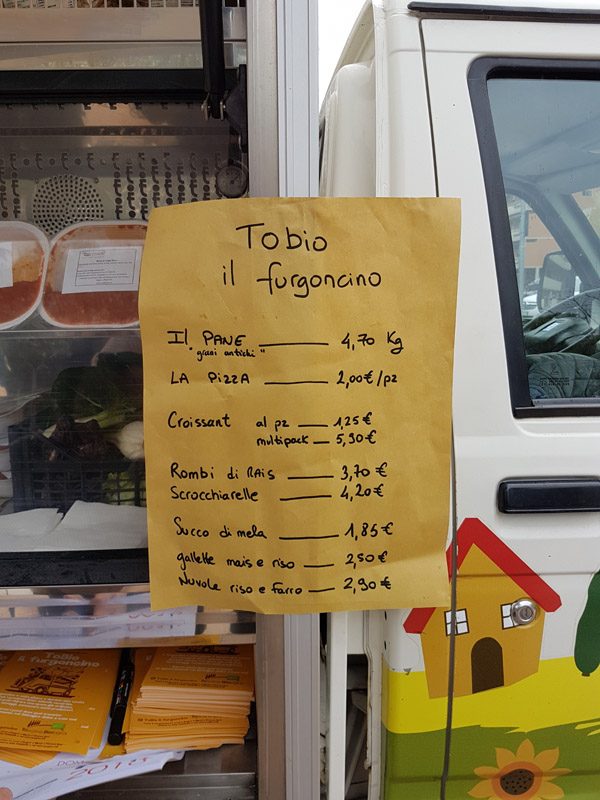 Tobio
il furgoncino
Il PANE 4,70 Kg
"grani antichi"
LA PIZZA 2,00€/pz
Croissant al pz 1,25€
multipack 5,90€
Rombi di RAIS 3,70€
Scrocchiarelle 4,20€
Succo di mela 1,85€
gallette mais e riso 2,50€
Nuvole riso e farro 2,90€
ToBio
il furgoncino